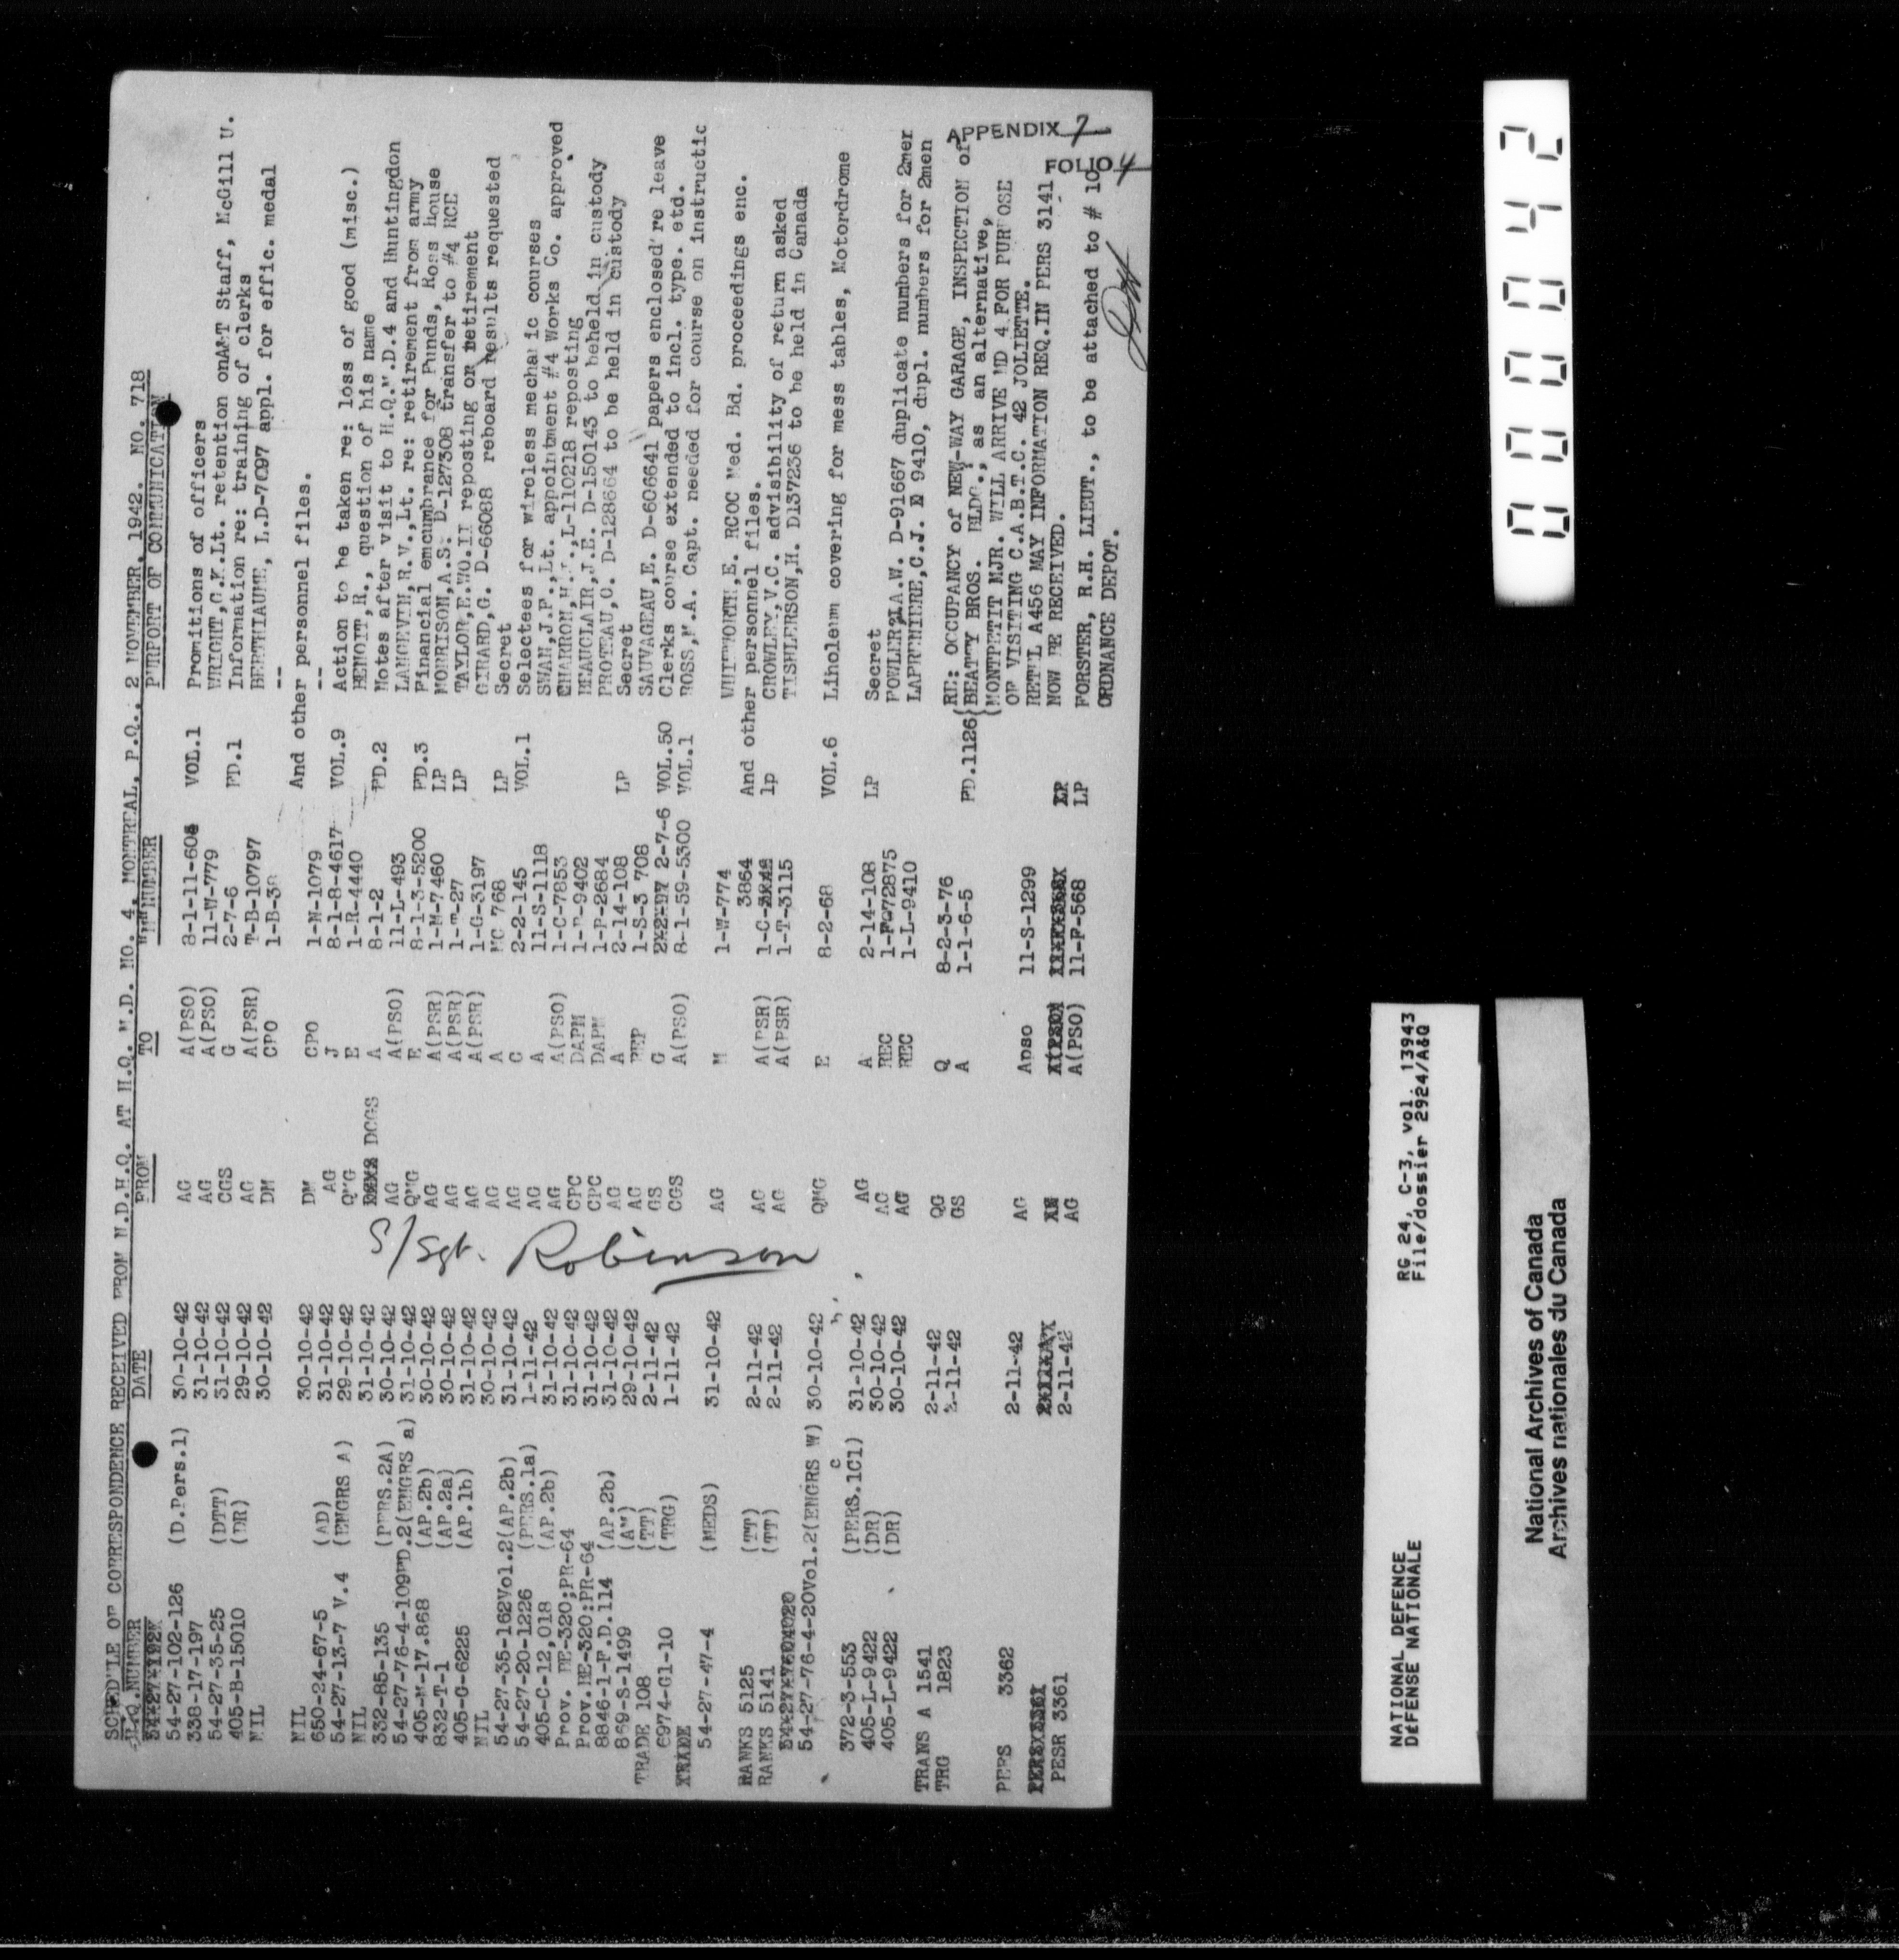 SCHEDULE OF CORRESPONDENCE RECEIVED FROM N.D.H.Q. AT H.Q. M.D. NO. 4, MONTREAL, P.Q., 2 NOVEMBER, 1942. NO. 718
H.Q.NUMBER DATE FROM TO "M" NUMBER PURPORT OF COMMUNICATION
54-27-102-126 (D.Pers.1) 30-10-42 AG A(PSO) 8-1-11-608 VOL.1 Promitions of officers
338-17-197 31-10-42 AG A(PSO) 11-W-779 WRIGHT,C.K.Lt. retention onA&T Staff, McGill U.
54-27-35-25 (DTT) 31-10-42 CGS G 2-7-6 PD.1 Information re: training of clerks
405-B-15010 (DR) 29-10-42 AG A(PSR) T-B-10797 BERTHIAUME, L.D-7097 appl. for effic. medal
NIL 30-10-42 DM CPO 1-B-38 --
And other personnel files.
NIL 30-10-42 DM CPO 1-N-1079 --
650-24-67-5 (AD) 31-10-42 AG J 8-1-8-4617 VOL.9 Action to be taken re: loss of good (misc.)
54-27-13-7 V.4 (ENGRS A) 29-10-42 QMG E 1-R-4440 BENOIT,R., question of his name
NIL 31-10-42 DCGS A 8-1-2 PD.2 Notes after visit to H.Q.M.D.4 and Huntingdon
332-85-135 (PERS.2A) 30-10-42 AG A(PSO) 11-L-493 LANGEVIN,R.V.,Lt. re: retirement from army
54-27-76-4-109PD.2(ENGRS a) 31-10-42 QMG E 8-1-3-5200 PD.3 Financial emcumbrance for Funds, Ross House
405-M-17.868 (AP.2b) 30-10-42 AG A(PSR) 1-M-7460 LP MORRISON,A.S. D-127308 transfer to #4 RCE
832-T-1 (AP.2a) 30-10-42 AG A(PSR) 1-T-27 LP TAYLOR,E.WO.II reposting or retirement
405-G-6225 (AP.1b) 31-10-42 AG A(PSR) 1-G-3197 GIRARD,G. D-66088 reboard results requested
NIL 30-10-42 AG A MC 768 LP Secret
54-27-35-162Vol.2(AP.2b) 31-10-42 AG G 2-2-145 VOL.1 Selectees for wireless mechanic courses
54-27-20-1226 (PERS.1a) 1-11-42 AG A 11-S-1118 SWAN,J.F.,Lt. appointment #4 Works Co. approved
405-C-12,018 (AP.2b) 31-10-42 AG A(PSO) 1-C-7853 CHARRON, L-110218 reposting
Prov. DE-320;PR-64 31-10-42 CPC DAPM 1-B-9402 BEAUCLAIR,J.E. D-150143 to beheld in custody
Prov.DE-320:PR-64 31-10-42 CPC DAPM 1-P-2684 PROTEAU,C. D-128664 to be held in custody
8846-1-F.D.114 (AP.2b) 31-10-42 AG A 2-14-108 LP Secret
869-S-1499 29-10-42 AG REP 1-S-3 708 SAUVAGEAU,E. D-606641 papers enclosed re leave
TRADE 108 (TT) 2-11-42 GS G 2-7-6 VOL.50 Clerks course extended to incl. type. etd.
6974-G1-10 (TRG) 1-11-42 CGS A(PSO) 8-1-59-5300 VOL.1 ROSS,M.A. Capt. needed for course on instructic
54-27-47-4 (MEDS) 31-10-42 AG M 1-W-774 WHITWORTH,E. RCOC Med. Bd. proceedings enc.
3864 And other personnel files.
RANKS 5125 (TT) 2-11-42 AG A(PSR) 1-C- lp CROWLEY,V.C. advisibility of return asked
RANKS 5141 (TT) 2-11-42 AG A(PSR) 1-T-3115 TISHLERSON,H. D137236 to be held in Canada
54-27-76-4-20Vol.2(ENGRS W) 30-10-42 QMG E 8-2-68 VOL.6 Liholeum covering for mess tables, Motordrome
c
372-3-553 (PERS.1C1) 31-10-42 AG A 2-14-108 LP Secret
405-L-9422 (DR) 30-10-42 AG REC 1-F-72875 FOWLER,A.W. D-91667 duplicate numbers for 2mer
405-L-9422 (DR) 30-10-42 AG REC 1-L-9410 LAPRENIERE,C.J. E 9410, dupl. numbers for 2men
APPENDIX 7
TRANS A 1541 2-11-42 QG Q 8-2-3-76 (RE: OCCUPANCY of NEW-WAY GARAGE, INSPECTION of
TRG 1823 2-11-42 GS A 1-1-6-5 PD.1126(BEATTY BROS. BLDG., as an alternative,
(MONTPETIT MJR. WILL ARRIVE MD 4 FOR PURPOSE
OF VISITING C.A.B.T.C. 42 JOLIETTE.
FOLIO 4
PERS 3362 2-11-42 AG Apso 11-S-1299 RETEL A456 MAY INFORMATION REQ.IN PERS 3141
NOW BE RECEIVED.
PESR 3361 2-11-42 AG A(PSO) 11-F-568 LP FORSTER, R.H. LIEUT., to be attached to # 10
ORDNANCE DEPOT.
S/Sgt. Robinson
NATIONAL DEFENCE RG 24, C-3, vol. 13943
DéFENSE NATIONALE File/dossier 2924/A&Q
National Archives of Canada
Archives nationales du Canada
000042